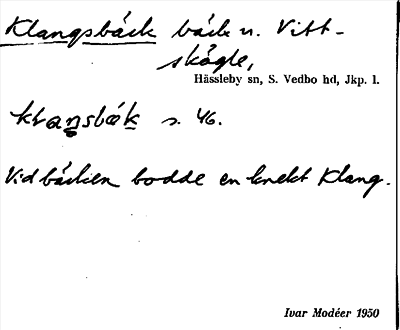 Klangsbäck bäck n. Vitt-
skögle,
Hässleby sn, S. Vedbo hd, Jkp. l.
s. 46.
Vid bäcken bodde en knekt Klang.
Ivar Modéer 1950